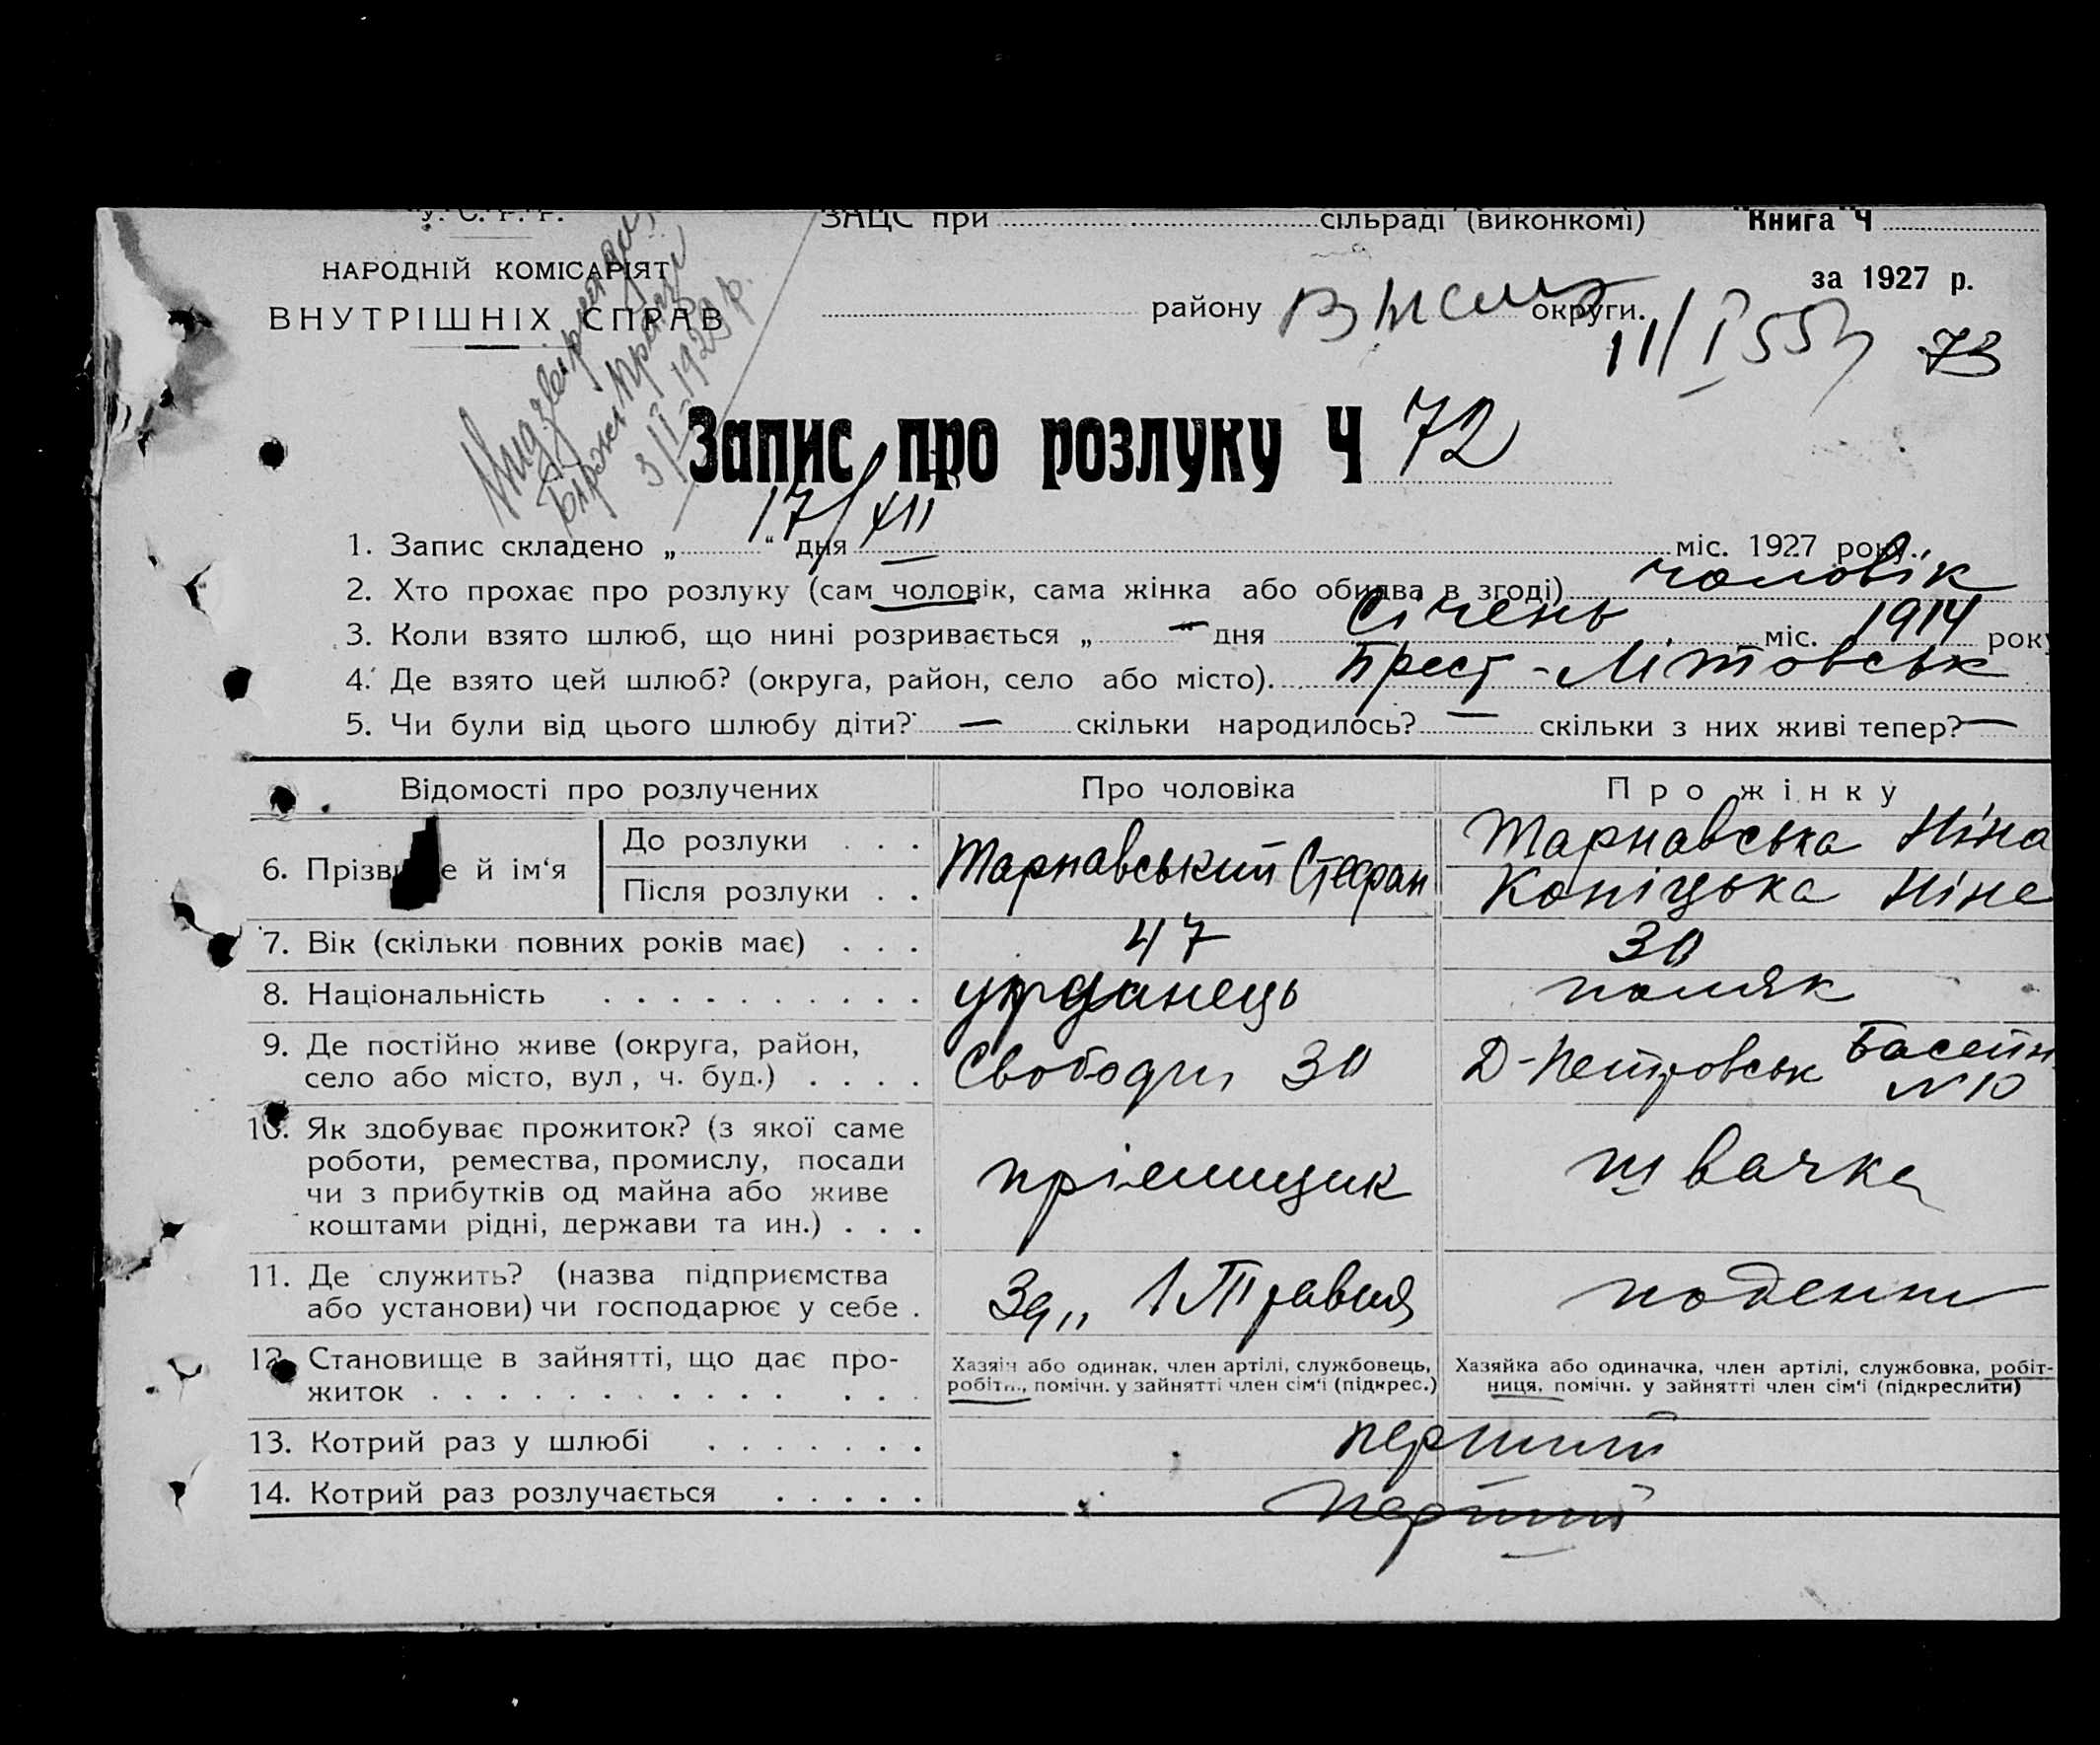 У. С. Р. Р.
ЗАЦС при сільраді (виконкомі) Книга Ч
НАРОДНІЙ КОМІСАРІЯТ
ВНУТРІШНІХ СПРАВ
району округи.
за 1927 р.
73
3/II-1929 р.
Запис про розлуку Ч 72
1. Запис складено „ 17 “ дня XII міс. 1927 року.
2. Хто прохає про розлуку (сам чоловік, сама жінка або обидва в згоді) чоловік
3. Коли взято шлюб, що нині розривається „ — “ дня Січень міс. 1914 року
4. Де взято цей шлюб? (округа, район, село або місто). Брест-Літовськ
5. Чи були від цього шлюбу діти? — скільки народилось? — скільки з них живі тепер? —
Відомості про розлучених Про чоловіка Про жінку
6. Прізвище й ім‘я До розлуки . . . Тарнавський Стефан Тарнавська Ніна
Після розлуки . . Копіцька Ніна
7. Вік (скільки повних років має) . . . 47 30
8. Національність . . . . . . . . . . поляк
9. Де постійно живе (округа, район, Свободи 30 Д-Петровськ Басейн
село або місто, вул , ч. буд.) . . . . №10
10. Як здобуває прожиток? (з якої саме
роботи, ремества, промислу, посади приємщик швачка
чи з прибутків од майна або живе
коштами рідні, держави та ин.) . . .
11. Де служить? (назва підприємства
або установи) чи господарює у себе . Зд „ 1 Травня поденно
12. Становище в зайнятті, що дає про-
житок . . . . . . . . . . . . . .
Хазяїн або одинак, член артілі, службовець,
робітн., помічн. у зайнятті член сім‘ї (підкрес.)
Хазяйка або одиначка, член артілі, службовка, робіт-
ниця, помічн. у зайнятті член сім‘ї (підкреслити)
13. Котрий раз у шлюбі . . . . . . . перший
14. Котрий раз розлучається . . . . . перший